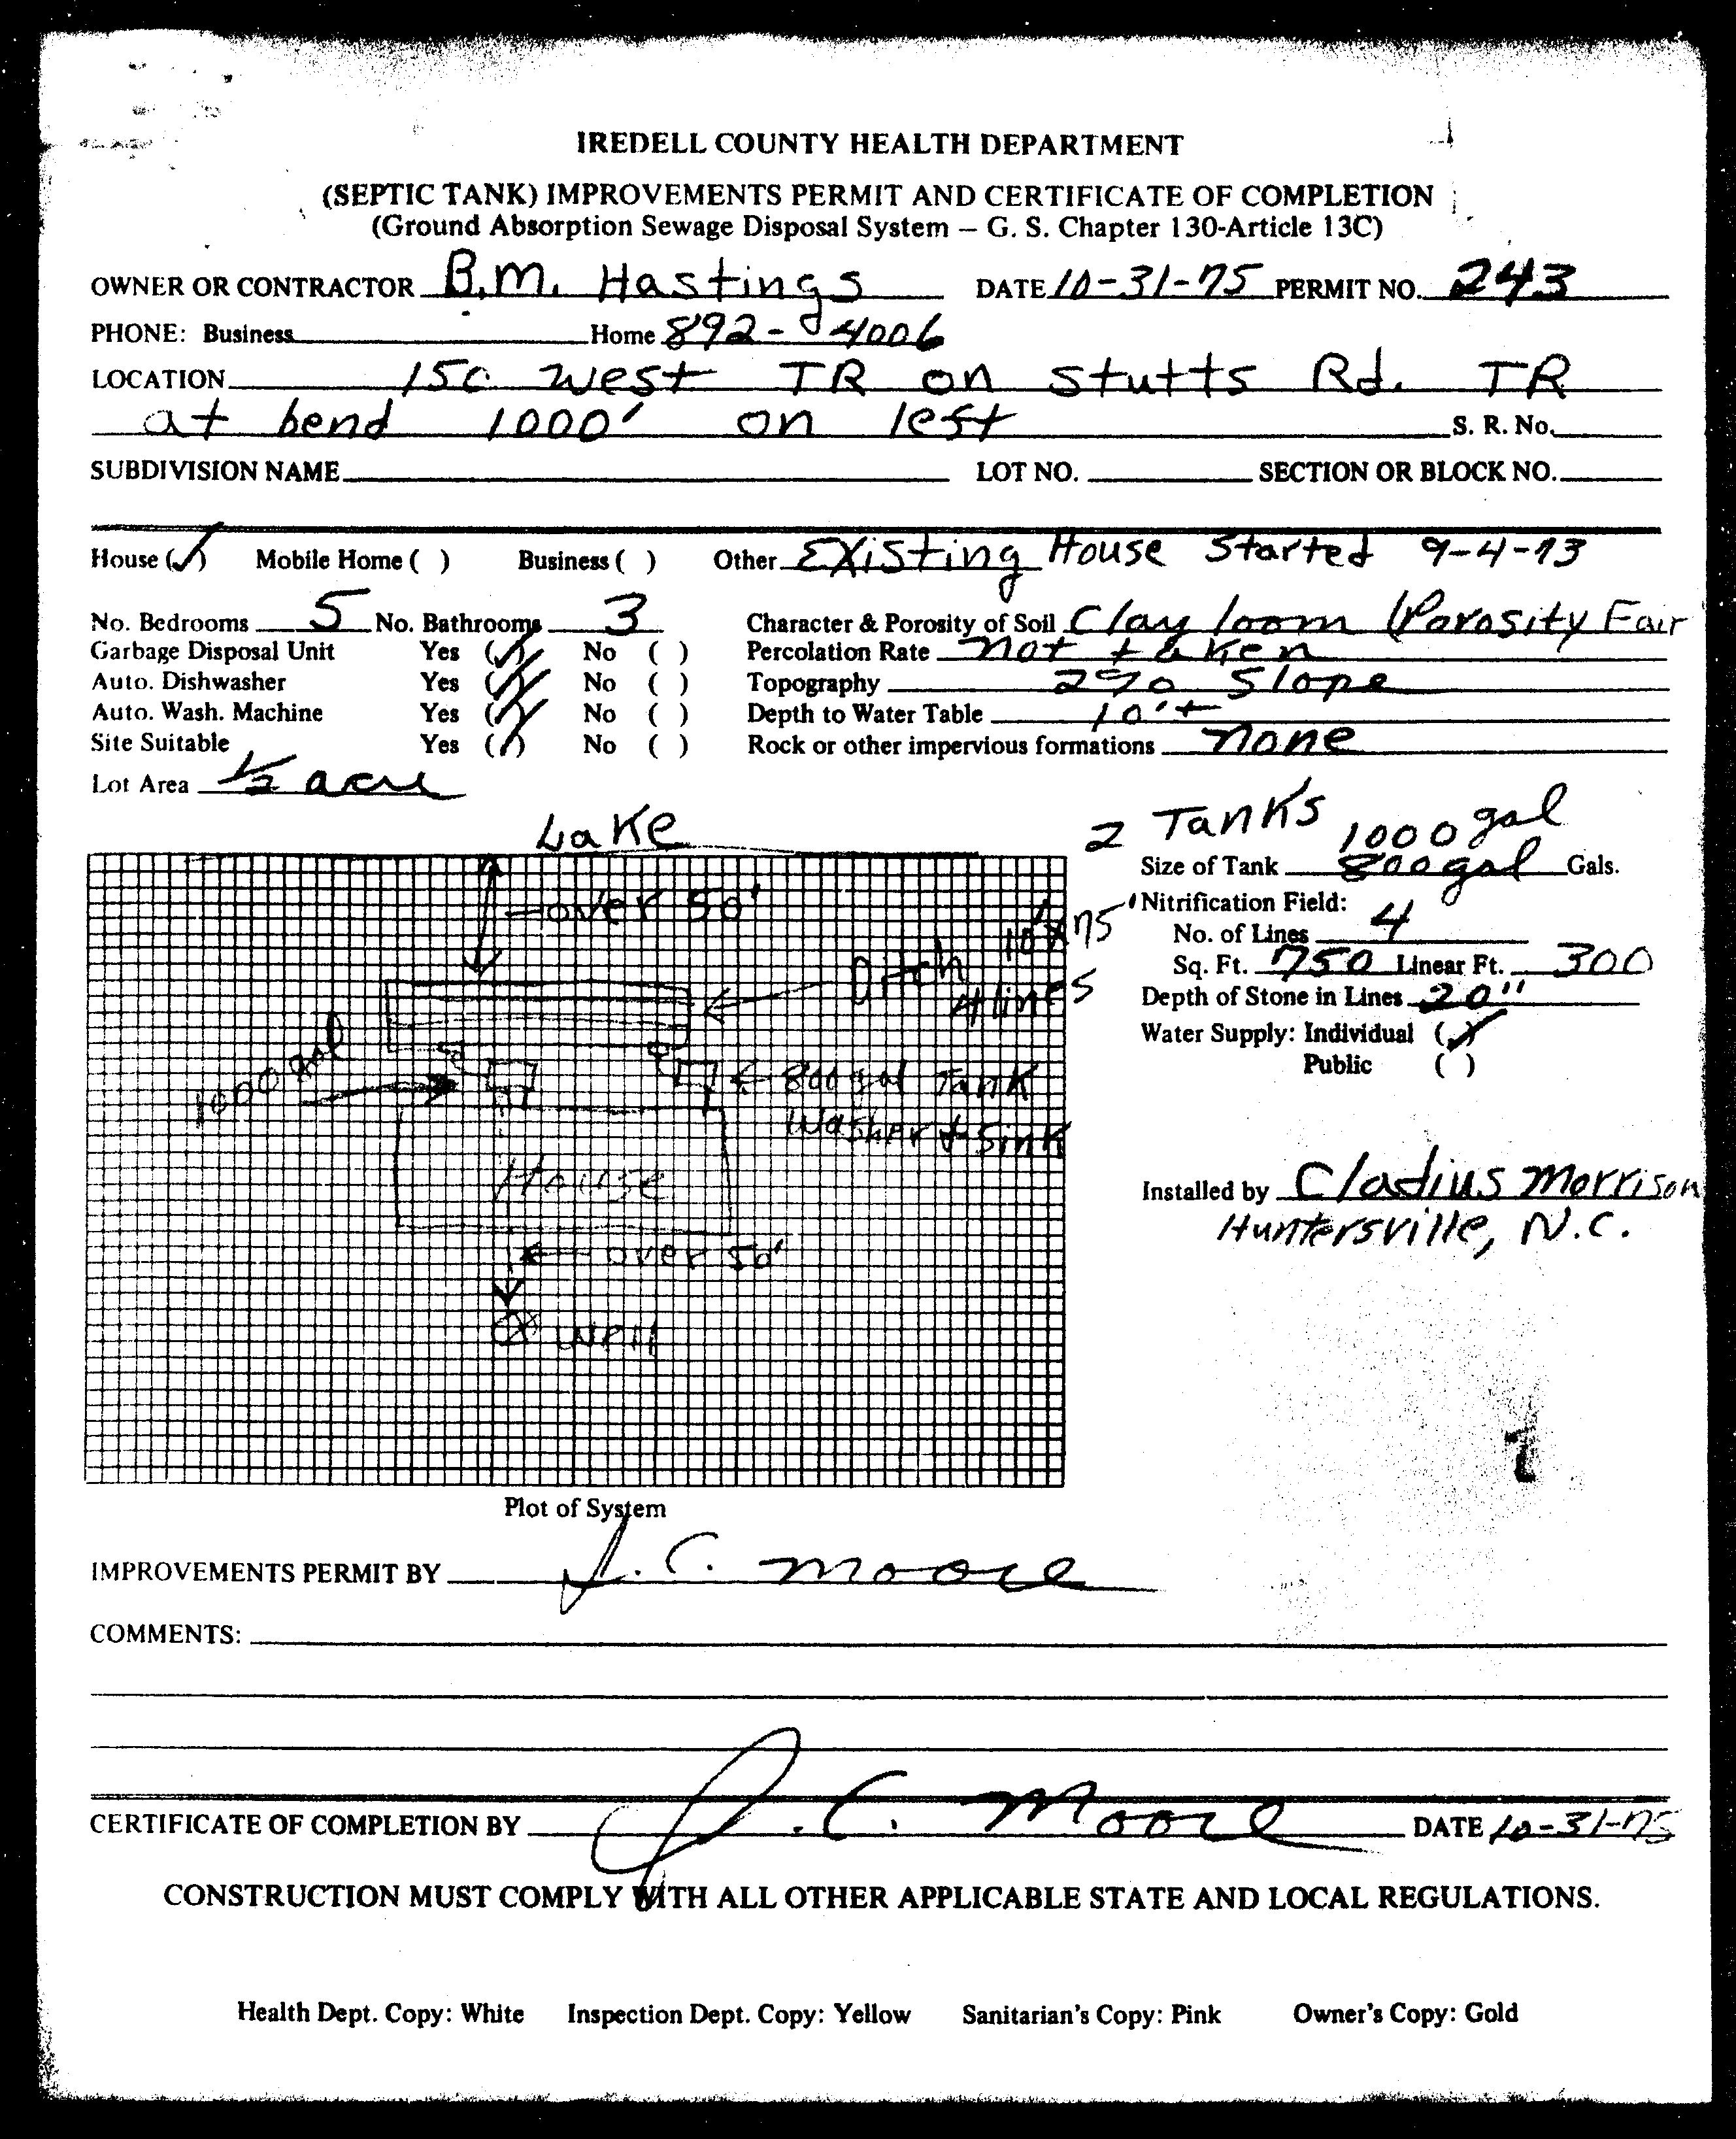 IREDELL COUNTY HEALTH DEPARTMENT
(SEPTIC TANK) IMPROVEMENTS PERMIT AND CERTIFICATE OF COMPLETION
(Ground Absorption Sewage Disposal System – G. S. Chapter 130-Article 13C)
OWNER OR CONTRACTOR B.M. Hastings DATE 10-31-75 PERMIT NO. 243
PHONE: Business Home 892-4006
LOCATION 150 West TR on Stutts Rd. TR
at bend 1000' on left S. R. No.
SUBDIVISION NAME LOT NO. SECTION OR BLOCK NO.
House (✓) Mobile Home ( ) Business ( ) Other Existing House Started 9-4-73
No. Bedrooms 5 No. Bathrooms 3 Character & Porosity of Soil Clay loom (Porosity Fair
Garbage Disposal Unit Yes (✓) No ( ) Percolation Rate not taken
Auto. Dishwasher Yes (✓) No ( ) Topography 2% Slope
Auto. Wash. Machine Yes (✓) No ( ) Depth to Water Table 10'+
Site Suitable Yes (✓) No ( ) Rock or other impervious formations none
Lot Area 1/2 acre
Lake
2 Tanks 1000 gal
Size of Tank 800 gal Gals.
over 50'
Nitrification Field:
10' x 75'
No. of Lines 4
Ditch
Sq. Ft. 750 Linear Ft. 300
4 lines
Depth of Stone in Lines 20"
Water Supply: Individual (✓)
Public ( )
1000 gal
800 gal Tank
Washer + Sink
House
Installed by Cladius Morrison
Huntersville, N.C.
over 50'
Well
Plot of System
IMPROVEMENTS PERMIT BY J. C. Moore
COMMENTS:
CERTIFICATE OF COMPLETION BY J. C. Moore DATE 10-31-75
CONSTRUCTION MUST COMPLY WITH ALL OTHER APPLICABLE STATE AND LOCAL REGULATIONS.
Health Dept. Copy: White Inspection Dept. Copy: Yellow Sanitarian's Copy: Pink Owner's Copy: Gold